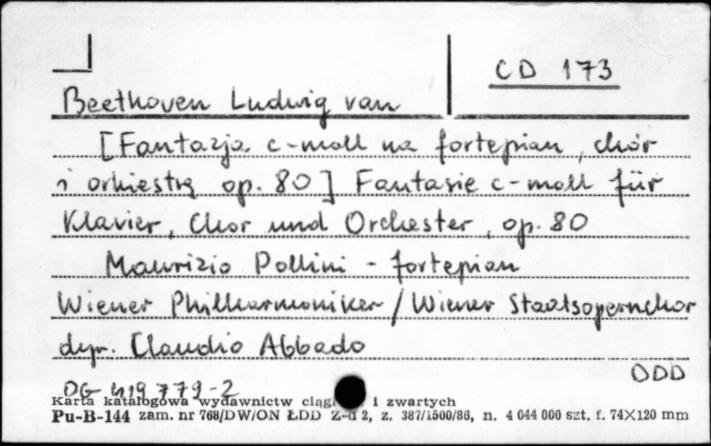 CD 173
Beethoven Ludwig van
[Fantazja c-moll na fortepian, chór
i orkiestrę op. 80] Fantasie c-moll für
Klavier, Chor und Orchester, op. 80
Maurizio Pollini - fortepian
Wiener Philharmoniker / Wiener Staatsopernchor
dyr. Claudio Abbado
DDD
DG 419 779-2
Karta katalogowa wydawnictw i zwartych
Pu-B-144 zam. nr 768/DW/ON ŁDD 2, z. 387/1500/86, n. 4 044 000 szt. f. 74X120 mm